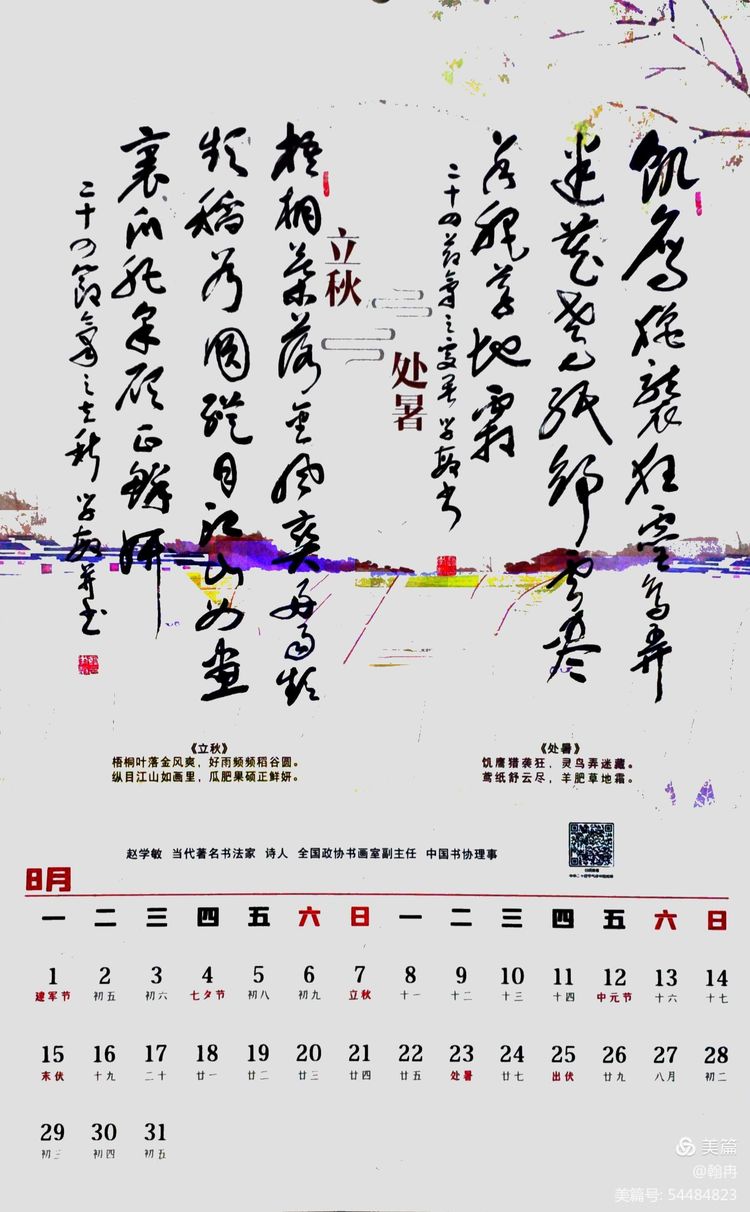 飢鷹獵襲狂靈鳥弄
迷藏鳶紙舒雲盡
羊肥草地霜
二十四节氣之處暑 学敏书
立秋
处暑
梧桐葉落金風爽好雨频
频稻谷圓縱目江山如畫
裏瓜肥果碩正鮮妍
二十四節氣之立秋 学敏并书
《立秋》
梧桐叶落金风爽，好雨频频稻谷圆。
纵目江山如画里，瓜肥果硕正鲜妍。
《处暑》
饥鹰猎袭狂，灵鸟弄迷藏。
鸢纸舒云尽，羊肥草地霜。
赵学敏 当代著名书法家 诗人 全国政协书画室副主任 中国书协理事
8月
一 二 三 四 五 六 日 一 二 三 四 五 六 日
1 2 3 4 5 6 7 8 9 10 11 12 13 14
建军节 初五 初六 七夕节 初八 初九 立秋 十一 十二 十三 十四 中元节 十六 十七
15 16 17 18 19 20 21 22 23 24 25 26 27 28
末伏 十九 二十 廿一 廿二 廿三 廿四 廿五 处暑 廿七 出伏 廿九 八月 初二
29 30 31
初三 初四 初五
美篇
@翰冉
美篇号: 54484823